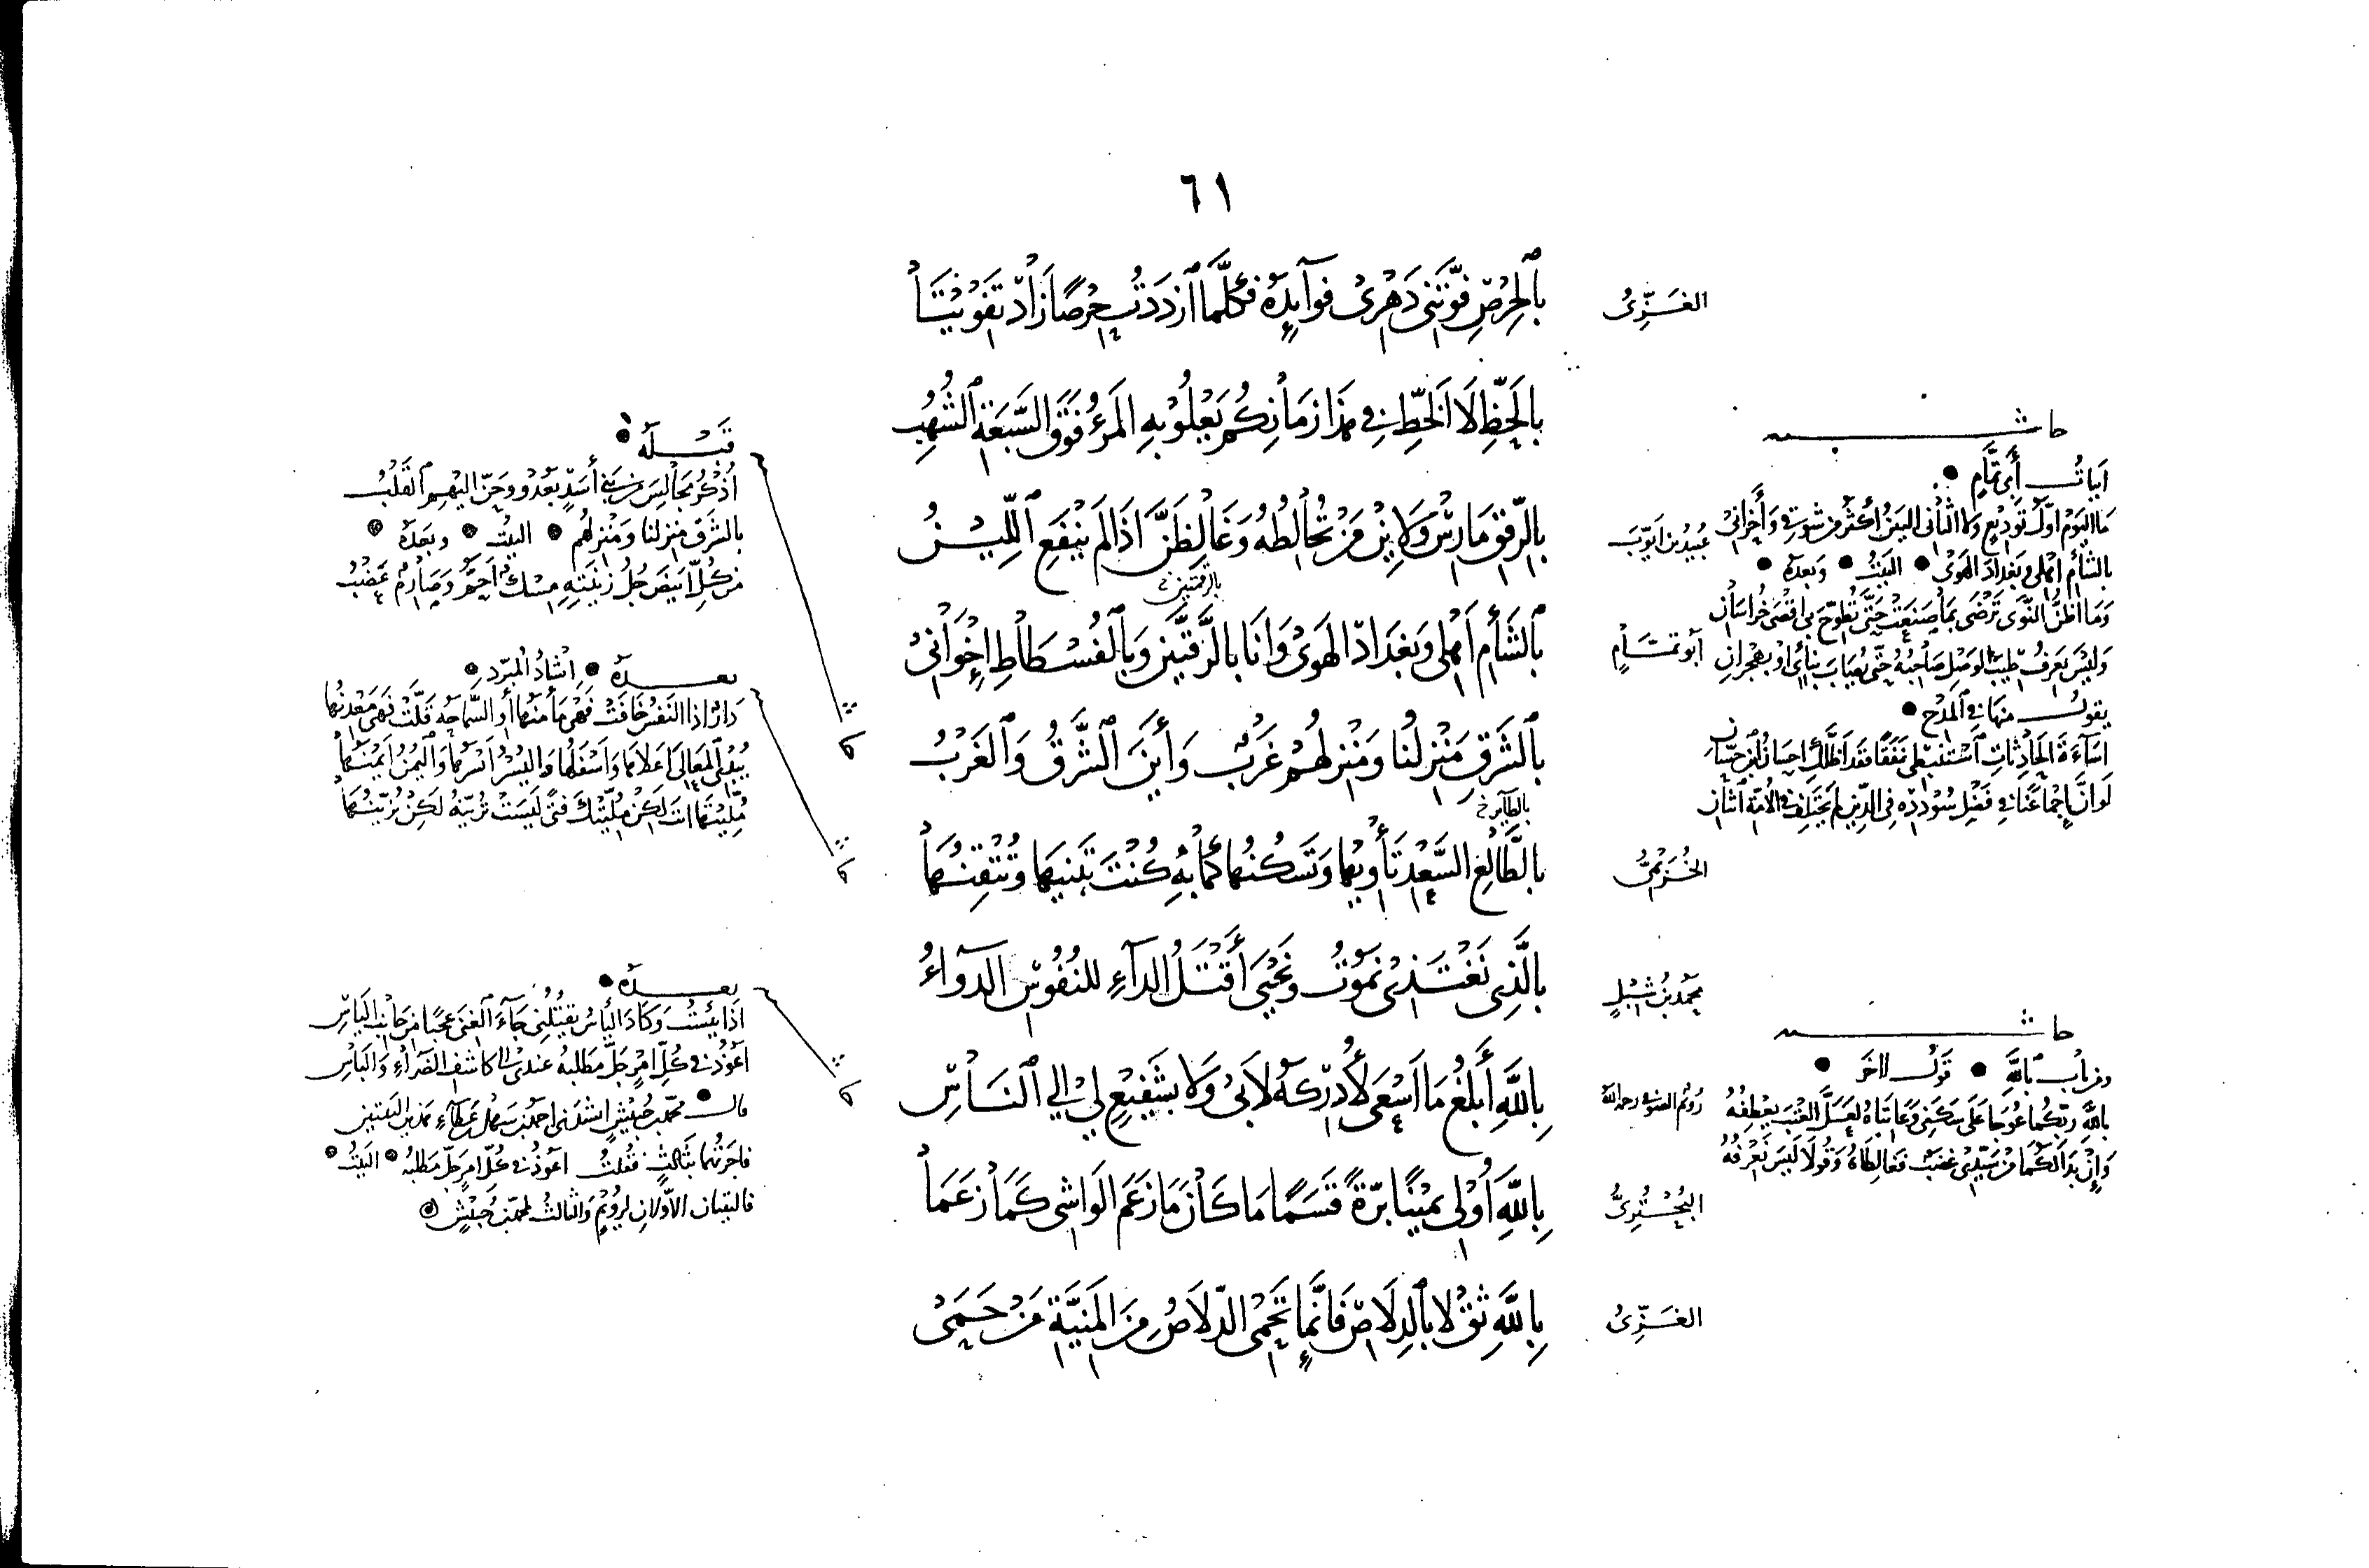 ٦١
الغَزِّىُّ
بِالْحِرْصِ فَوَّتَنِى دَهْرِىْ فَوَآيِدَهُ فَكُلَّمَا ازْدَدْتُ حِرْصًا زَادَ تَفْوِيْتَا
بِالْحَظِّ لَا الْخَطِّ فِي هَذَا زَمَانِكُمُ يَعْلُوْ بِهِ الْمَرْءُ فَوْقَ السَّبْعَةِ الشُّهُبِ
عُبَيْدُ بن أَيُّوبَ
بِالرِّفْقِ مَارِسْ وَلَايِنْ مَنْ تُخَالِطُهُ وَغَالِظَنَّ اذَا لَمْ يَنْفَعِ اللِّيْنُ
بالرقمتين
أَبُو تَمَّامٍ
بِالشَّأْمِ أَهْلِى وَبَغْدَادُ الْهَوَىْ وَأَنَا بِالرَّقَّتَيْنِ وَبِالْفُسْطَاطِ إِخْوَانِىْ
بِالشَّرَقِ مَنْزِلُنَا وَمَنْزِلُهُمْ غَرْبٌ وَأَيْنَ الشَّرْقُ وَالْغَرْبُ
بالطاير خ
الخُرَيْمِىُّ
بِالطَّالِعِ السَّعْدِ تَأْوِيْهَا وَتَسْكُنُهَا كَمَا بِهِ كُنْتَ تَبْنِيهَا وَتُتْقِنُهَا
مُحَمَّدُ بْنُ شِبْلٍ
بِالَّذِى نَغْتَذِىْ نَمُوْتُ وَنَحْيَى أَقْتَلُ الدَّآءِ لِلنُّفُوْسِ الدَّوَآءُ
رُوَيْم الصوفي رحمه الله
بِاللَّهِ أَبْلُغُ مَا أَسْعَى لِأُدْرِكَهُ لَا بِىْ وَلَا بِشَفِيْعٍ لِيْ إِلَي النَّاسِ
البُحْتُرِىُّ
بِاللَّهِ أُوْلِى يَمِيْنًا بَرَّةً قَسَمًا مَا كَانَ مَا زَعَمَ الْوَاشِى كَمَا زَعَمَا
الغَزِّىُّ
بِاللَّهِ ثِقْ لَا بِالدِّلَاصِ فَإِنَّمَا تَحْمِى الدِّلَاصُ مِنَ الْمَنِيَّةِ مَنْ حَمَىْ
حاشيه
أبيات أَبِى تَمَّامٍ
مَا الْيَوْمُ أَوَّلَ تَوْدِيْعٍ وَلَا الثَّانِى الْبَيْنُ أَكْثَرُ مِنْ شَوْقِي وَأَحْزَانِيْ
بِالشَّأْمِ أَهْلِى وَبَغْدَادُ الْهَوَىْ البَيْتُ وَبَعْدَهُ
وَمَا أَظُنُّ النَّوَى تَرْضَى بِمَا صَنَعَتْ حَتَّى تُطَوِّحَ بِي أَقْصَى خُرَاسَانِ
وَلَيْسَ يَعْرِفُ طِيْبَ الْوَصْلِ صَاحِبُهُ حَتَّى يُصَابَ بِنَأْىٍ أَوْ بِهِجْرَانِ
يقول منها فِي المَدْحِ
إِسَاءَةَ الْحَادِثَاتِ اسْتَنْبِطِي نَفَقًا فَقَدْ أَظَلَّكِ إِحْسَانُ ابْنِ حَسَّانِ
لَوْ أَنَّ إِجْمَاعَنَا فِي فَضْلِ سُوْدَدِهِ فِي الدِّيْنِ لَمْ يَخْتَلِفْ فِي الْأُمَّةِ اثْنَانِ
حاشيه
ومن باب بِاللَّهِ قول الاخَر
بِاللَّهِ رَبِّكُمَا عُوْجَا عَلَى سَكَنِي وَعَاتِبَاهُ لَعَلَّ الْعَتْبَ يَعْطِفُهُ
وَإِنْ بَدَا لَكُمَا مِنْ سَيِّدِيْ غَضَبٌ فَغَالِطَاهُ وَقُولَا لَيْسَ نَعْرِفُهُ
قَبْلَهُ
أُذْكُرْ مَجَالِسَ مِنْ بَنِي أَسَدٍ بَعُدُوْا وَحَنَّ الَيْهِمِ الْقَلْبُ
بالشَّرَقِ مَنْزِلُنَا وَمَنْزِلُهُمْ البيْتُ وبَعْدَهُ
مِنْ كُلِّ أَبْيَضَ جُلُّ زِيْنَتِهِ مِسْكٌ أَحَمُّ وَصَارِمٌ عَضْبُ
بعده إنْشَادُ المُبَرّد
دَارٌ إِذَا النَّفْسُ خَافَتْ فَهْىَ مَأْمَنُهَا أَوِ السَّمَاحَةُ قَلَّتْ فَهْىَ مَعْدِنُهَا
مُلِّيْتَهَا أَنْتَ لَكِنْ مُلِّيَتْكَ فَتًى لَيْسَتْ تُزَيِّنُهُ لَكِنْ يُزَيِّنُهَا
بعده
إِذَا يَئِسْتُ وَكَادَ الْيَأْسُ يَقْتُلُنِي جَآءَ الْغِنَى عَجَبًا مِنْ جَانِبِ الْيَاسِ
أَعُوْذُ فِي كُلِّ أَمْرٍ جَلَّ مَطْلَبُهُ عِنْدِيْ الى كَاشِفِ الضَّرَّاءِ وَالْبَأْسِ
قال محمّد بن حُبَيْشٍ انشدنى احمد بن سهل بن عَطَآءٍ هذين البَيْتين
فاجَزْتُهما بثَالِثٍ فَقُلتُ أَعُوْذُ فِي كُلِّ أَمْرٍ جَلَّ مَطْلَبُهُ البَيْتُ
فالبَيْتان الأَوَّلانِ لِرُوَيْمٍ والثالثُ لمحمّد بن حُبَيْشٍ